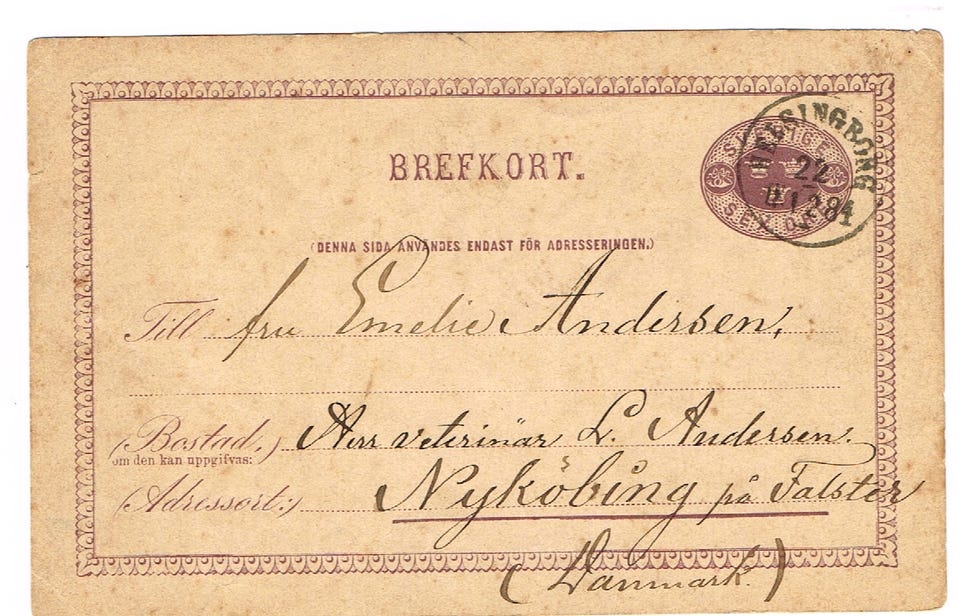 BREFKORT.
SVERIGE
SEX ÖRE
HELSINGBORG
22
1284
(DENNA SIDA ANVÄNDES ENDAST FÖR ADRESSERINGEN.)
Till fru Emelie Andersen,
(Bostad,) Herr veterinär L. Andersen.
om den kan uppgifvas:
(Adressort:) Nyköbing på Falster
(Danmark.)